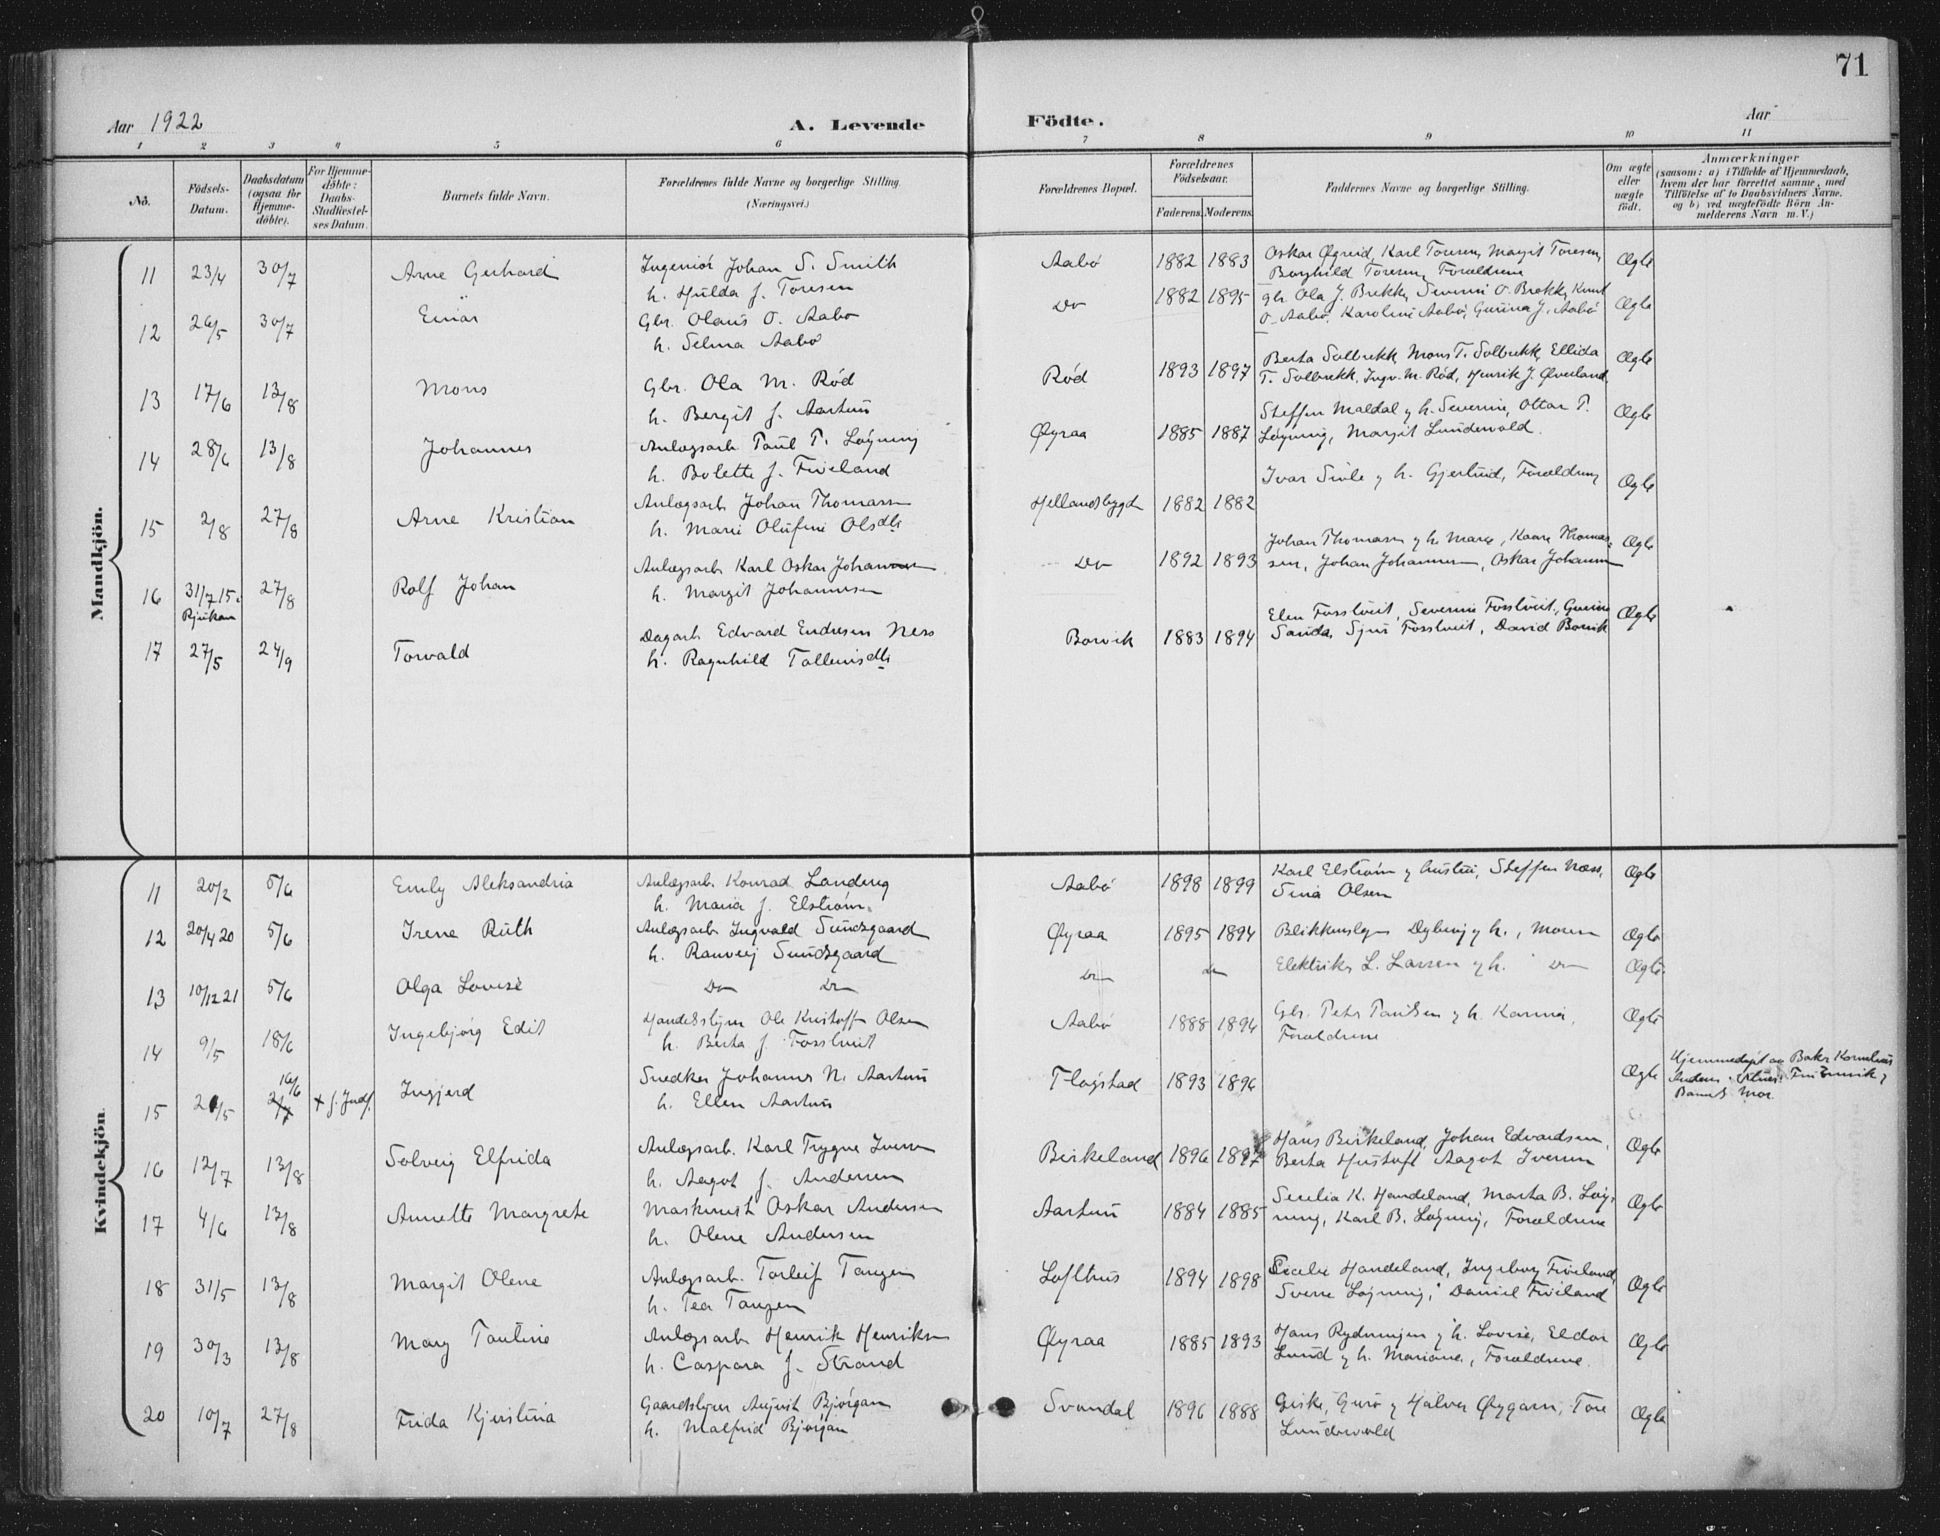 71
Aar 1922
A. Levende
Födte.
Aar
1 2 3 4 5 6 7 8 9 10 11
No.
Födsels-Datum.
Daabsdatum (ogsaa for Hjemme-døbte).
For Hjemme-døbte: Daabs-Stadfæstel-ses Datum.
Barnets fulde Navn.
Forældrenes fulde Navne og borgerlige Stilling.
(Næringsvei.)
Forældrenes Bopæl.
Forældrenes Födselsaar.
Faderens. Moderens.
Faddernes Navne og borgerlige Stilling.
Om ægte eller uægte født.
Anmærkninger
(saasom: a) i Tilfælde af Hjemmedaab,
hvem der har forrettet samme, med
Tilföielse af to Daabsvidners Navne,
og b) ved uægtefödte Börn An-
melderens Navn m. V.)
Mandkjön.
11 23/4 30/7 Arne Gerhard Ingeniör Johan S. Smith
h. Hulda f. Toresen
Aabø 1882 1883 Oskar Karl Toresen, Margit Toresen,
Borghild Toresen, Forældrene Ægte
12 26/5 30/7 Einar Gbr. Olaus O. Aabø
h. Selma Aabø
Do 1882 1895 gbr. Ola J. Brekke, Severin O. Brekke, Knut
O. Aabø, Karoline Aabø, Gurina J. Aabø Ægte
13 17/6 13/8 Mons Gbr. Ola M. Rød
h. Bergit f. Aartun
Rød 1893 1897 Berta Solbrekk, Mons T. Solbrekk, Ellida
T. Solbrekk, Ingv. M. Rød, Henrik J. Øverland Ægte
14 28/6 13/8 Johannes Anlægsarb. Paul T. Løyning
h. Bolette f. Fiveland
Øyraa 1885 1887 Steffen Maldal & h. Severine, Ottar P.
Løyning, Margit Lundevold. Ægte
15 2/8 27/8 Arne Kristian Anlægsarb. Johan Thomassen
h. Marie Olufine Olsdtr
Hellandsbygd 1882 1882 Ivar h. Gjertrud, Forældrene Ægte
16 31/7 15. Rjukan 27/8 Rolf Johan Anlægsarb. Karl Oskar Johannesen
h. Margit Johannesen
Do 1892 1893 Johan Thomassen & h. Marie, Kaare Thomas-
sen, Johan Johannesen, Oskar Johannesen Ægte
17 27/5 24/9 Torvald Dagarb. Edvard Endresen Ness
h. Ragnhild Tollevsdtr
Borvik 1883 1894 Elen Fosstveit, Severine Fosstveit, Gurine
Sanda, Sjur Fosstveit, David Borvik Ægte
Kvindekjön.
11 20/2 5/6 Emly Aleksandria Anlægsarb. Konrad Landeng
h. Maria f. Elstrøm.
Aabø 1898 1899 Karl Elstrøm & hustru, Steffen Næss,
Sina Olsen Ægte
12 20/4 20 5/6 Irene Ruth Anlægsarb. Ingvald Sundsgaard
h. Ranveig Sundsgaard
Øyraa 1895 1894 Blikkenslager & h., Moren Ægte
13 10/12 21 5/6 Olga Lovise Do Do
Do Do Elektriker L. Larsen & h. Do Ægte
14 9/5 18/6 Ingebjørg Edit Handelsstyrer Ole Kristoffer Olsen
h. Berta f. Fosstveit
Aabø 1888 1894 Gbr. Peter Paulsen & h. Karina,
Forældrene Ægte
15 21/5 16/6 2/7 + f. Indf. Ingjerd Snedker Johannes N. Aartun
h. Ellen Aartun
Fløgstad 1893 1896 Ægte Hjemmedøpt av Baker Kornelius
Barnets Mor
16 12/7 13/8 Solveig Elfrida Anlægsarb. Karl Trygve Iversen
h. Aagot f. Andersen
Birkeland 1896 1897 Hans Birkeland, Johan Edvardsen,
Berta Hustoft Aagot Iversen Ægte
17 4/6 13/8 Annette Margrete Maskinist Oskar Andersen
h. Olene Andersen
Aartun 1884 1885 Secelia K. Handeland, Marta B. Løy-
ning, Karl B. Løyning, Forældrene Ægte
18 31/5 13/8 Margit Olene Anlægsarb. Torleif Tangen
h. Tea Tangen
Lofthus 1894 1898 Secelie Handeland, Ingeborg Fiveland,
Sverre Løyning, Daniel Fiveland Ægte
19 30/3 13/8 Mary Pauline Anlægsarb. Henrik Henriksen
h. Caspara f. Strand
Øyraa 1885 1893 Hans Rydningen & h. Lovise, Eldar
Lund & h. Mariane, Forældrene. Ægte
20 10/7 27/8 Frida Kjerstina Gaardstyrer August Bjørgan
h. Malfrid Bjørgan
Svandal 1896 1888 Giske, Guro & Halvor Øygarn, Tore
Lundevold Ægte